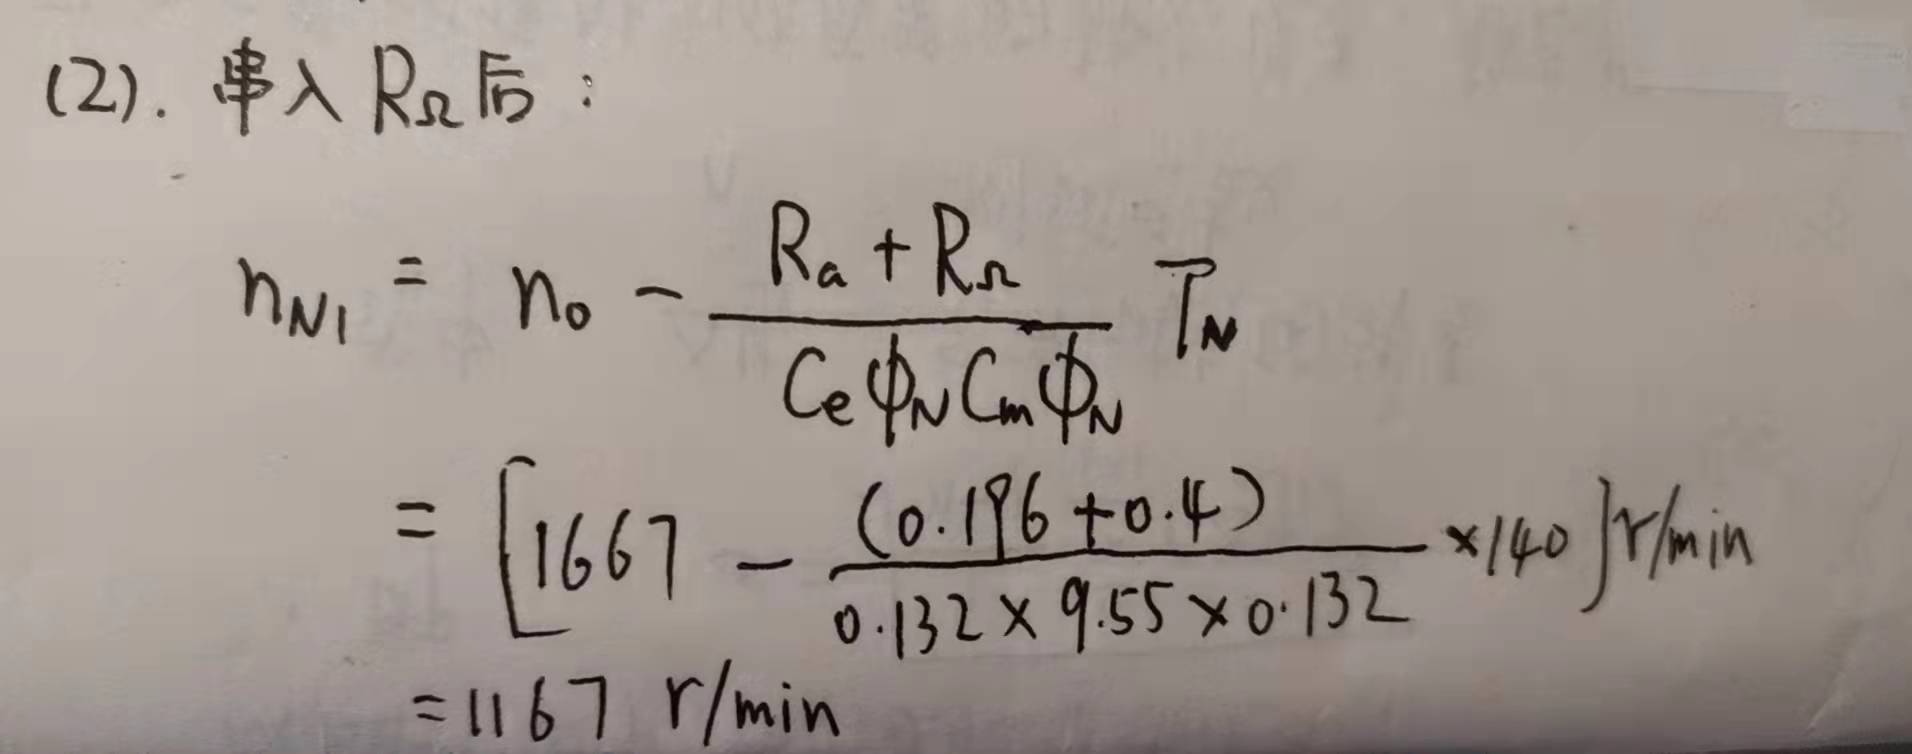 (2). 串入 RΩ 后：
n_N1 = n_0 - (R_a + R_Ω) / (C_e ϕ_N C_m ϕ_N) T_N
= [1667 - (0.196 + 0.4) / (0.132 × 9.55 × 0.132) × 140] r/min
= 1167 r/min